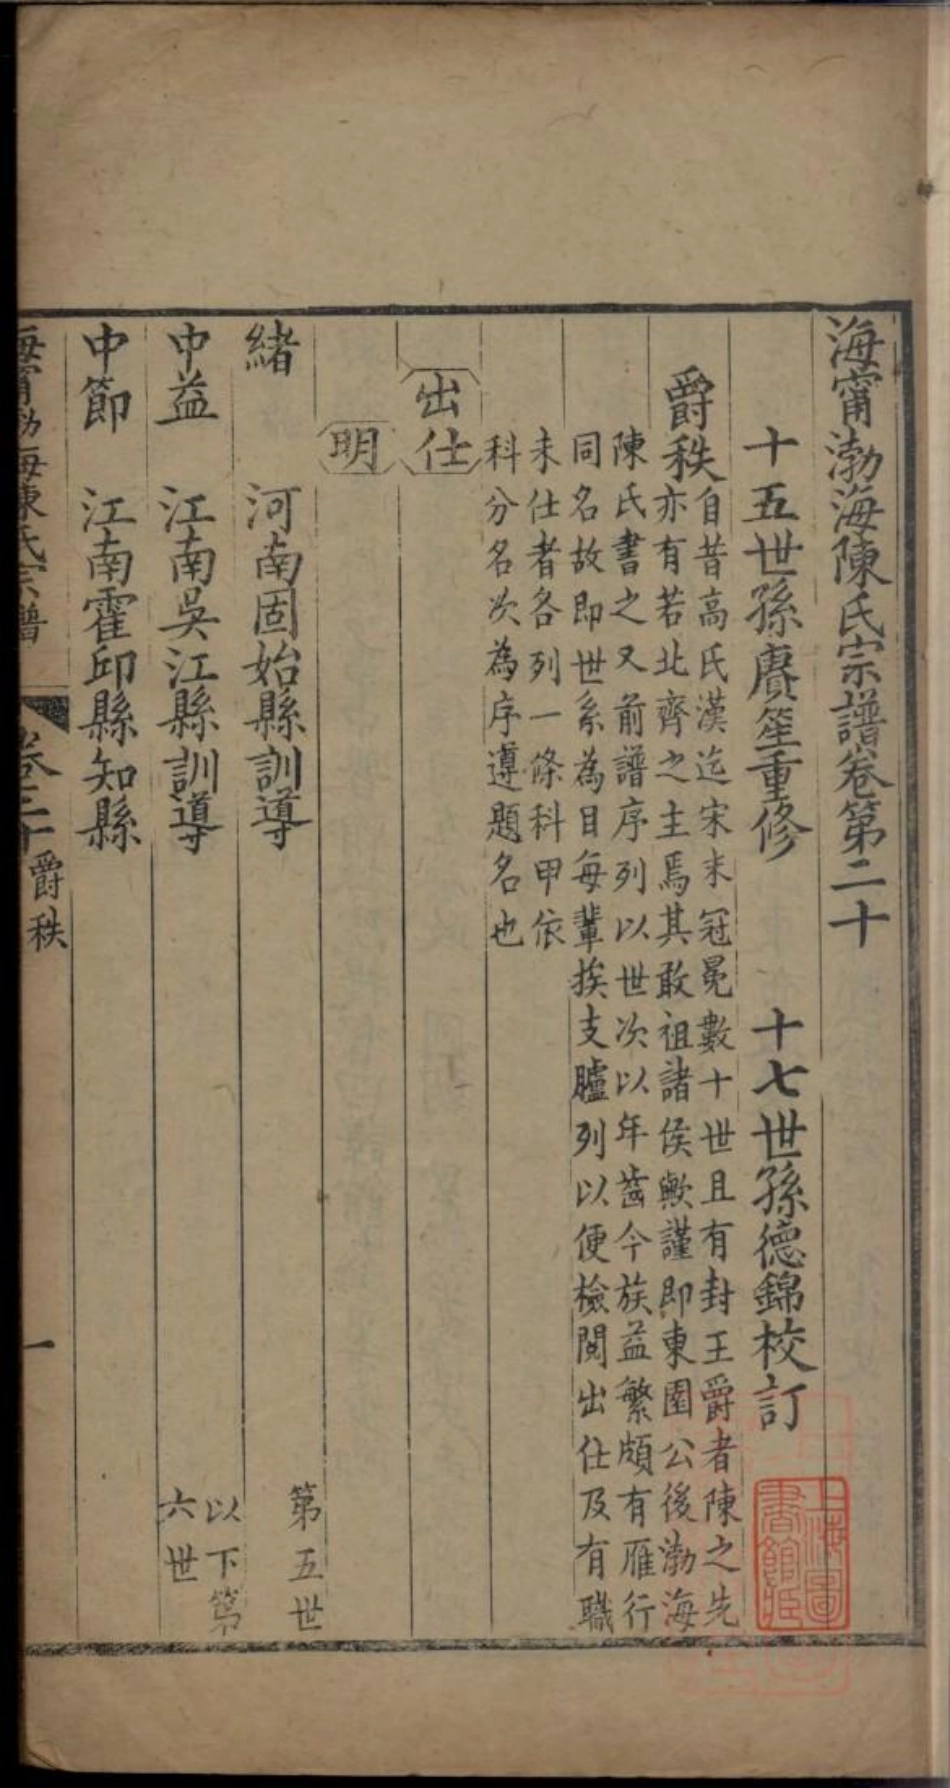 海甯渤海陳氏宗譜卷第二十
十五世孫賡笙重修　十七世孫德錦校訂
爵秩
自昔高氏漢迄宋末冠冕數十世且有封王爵者陳之先
亦有若北齊之主焉其敢祖諸侯歟謹即東園公後渤海
陳氏書之又前譜序列以世次以年齒今族益繁頗有雁行
同名故即世系為目每輩挨支臚列以便檢閱出仕及有職
未仕者各列一條科甲依
科分名次為序遵題名也
出仕
明
緒　河南固始縣訓導　第五世
中益　江南吳江縣訓導　以下第六世
中節　江南霍邱縣知縣
海甯渤海陳氏宗譜　卷二十　爵秩　一
上海圖書館藏